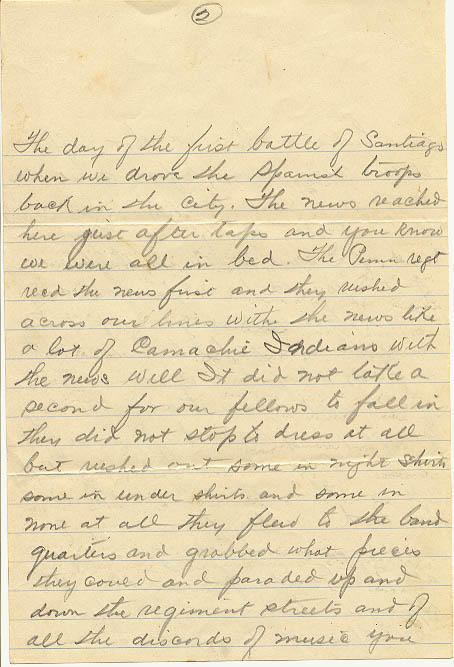 2
The day of the first battle of Santiago
when we drove the Spanist troops
back in the city. The news reached
here just after taps and you know
we were all in bed. The Penn regt
recd the news first and they rushed
across our lines withe the news like
a lot of Camachie Indians with
the news Will It did not take a
second for our fellows to fall in
they did not stop to dress at all
but rushed out some in night shirts
some in under shirts and some in
none at all they flew to the band
quarters and grabbed what pieces
they coued and paraded up and
down the regiment streets and of
all the discords of music you